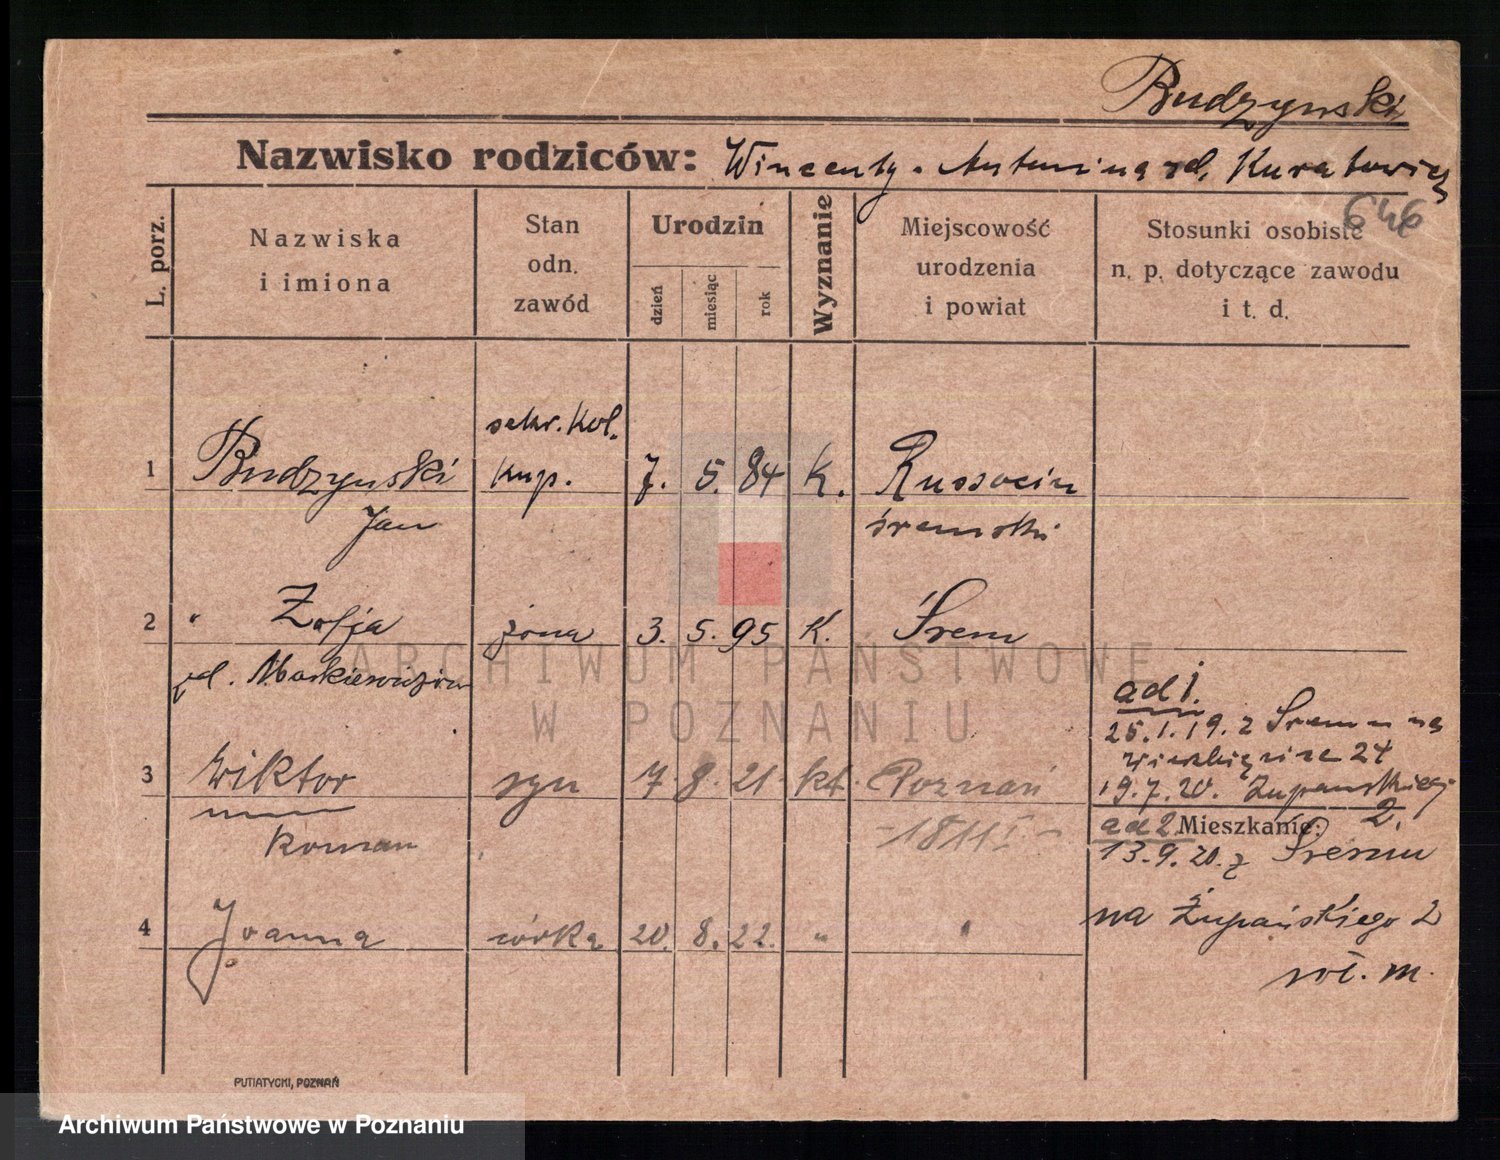 Budzyński
Nazwisko rodziców: Wincenty. Antonina zd. Kuratowicz
646
L. porz.
Nazwiska
i imiona
Stan
odn.
zawód
Urodzin
dzień
miesiąc
rok
Wyznanie
Miejscowość
urodzenia
i powiat
Stosunki osobiste
n. p. dotyczące zawodu
i t. d.
sekr. kol.
1 Budzyński kup. 7. 5. 84 K. Russocin
Jan śremski
2 " Zofja żona 3. 5. 95 K. Śrem
zd. Maśkiewiczów
ad 1.
25.1.19. z Śremu na
24
3 Wiktor syn 7. 8. 21. kt. Poznań
19.7.20. Żupańskiego
2.
Roman
ad 2. Mieszkanie:
13.9.20. z Śremu
4 Joanna córka 20. 8. 22. "
na Żupańskiego 2
m.
PUTIATYCKI, POZNAŃ
ARCHIWUM PAŃSTWOWE
W POZNANIU
Archiwum Państwowe w Poznaniu